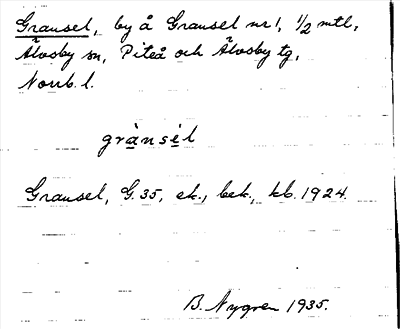 Gransel, by å Gransel nr 1, 1/2 mtl,
Älvsby sn, Piteå och Älvsby tg,
Norrb. l.
grànsèl
Gransel, G. 35, ek., bek., kb. 1924.
B. Nygren 1935.